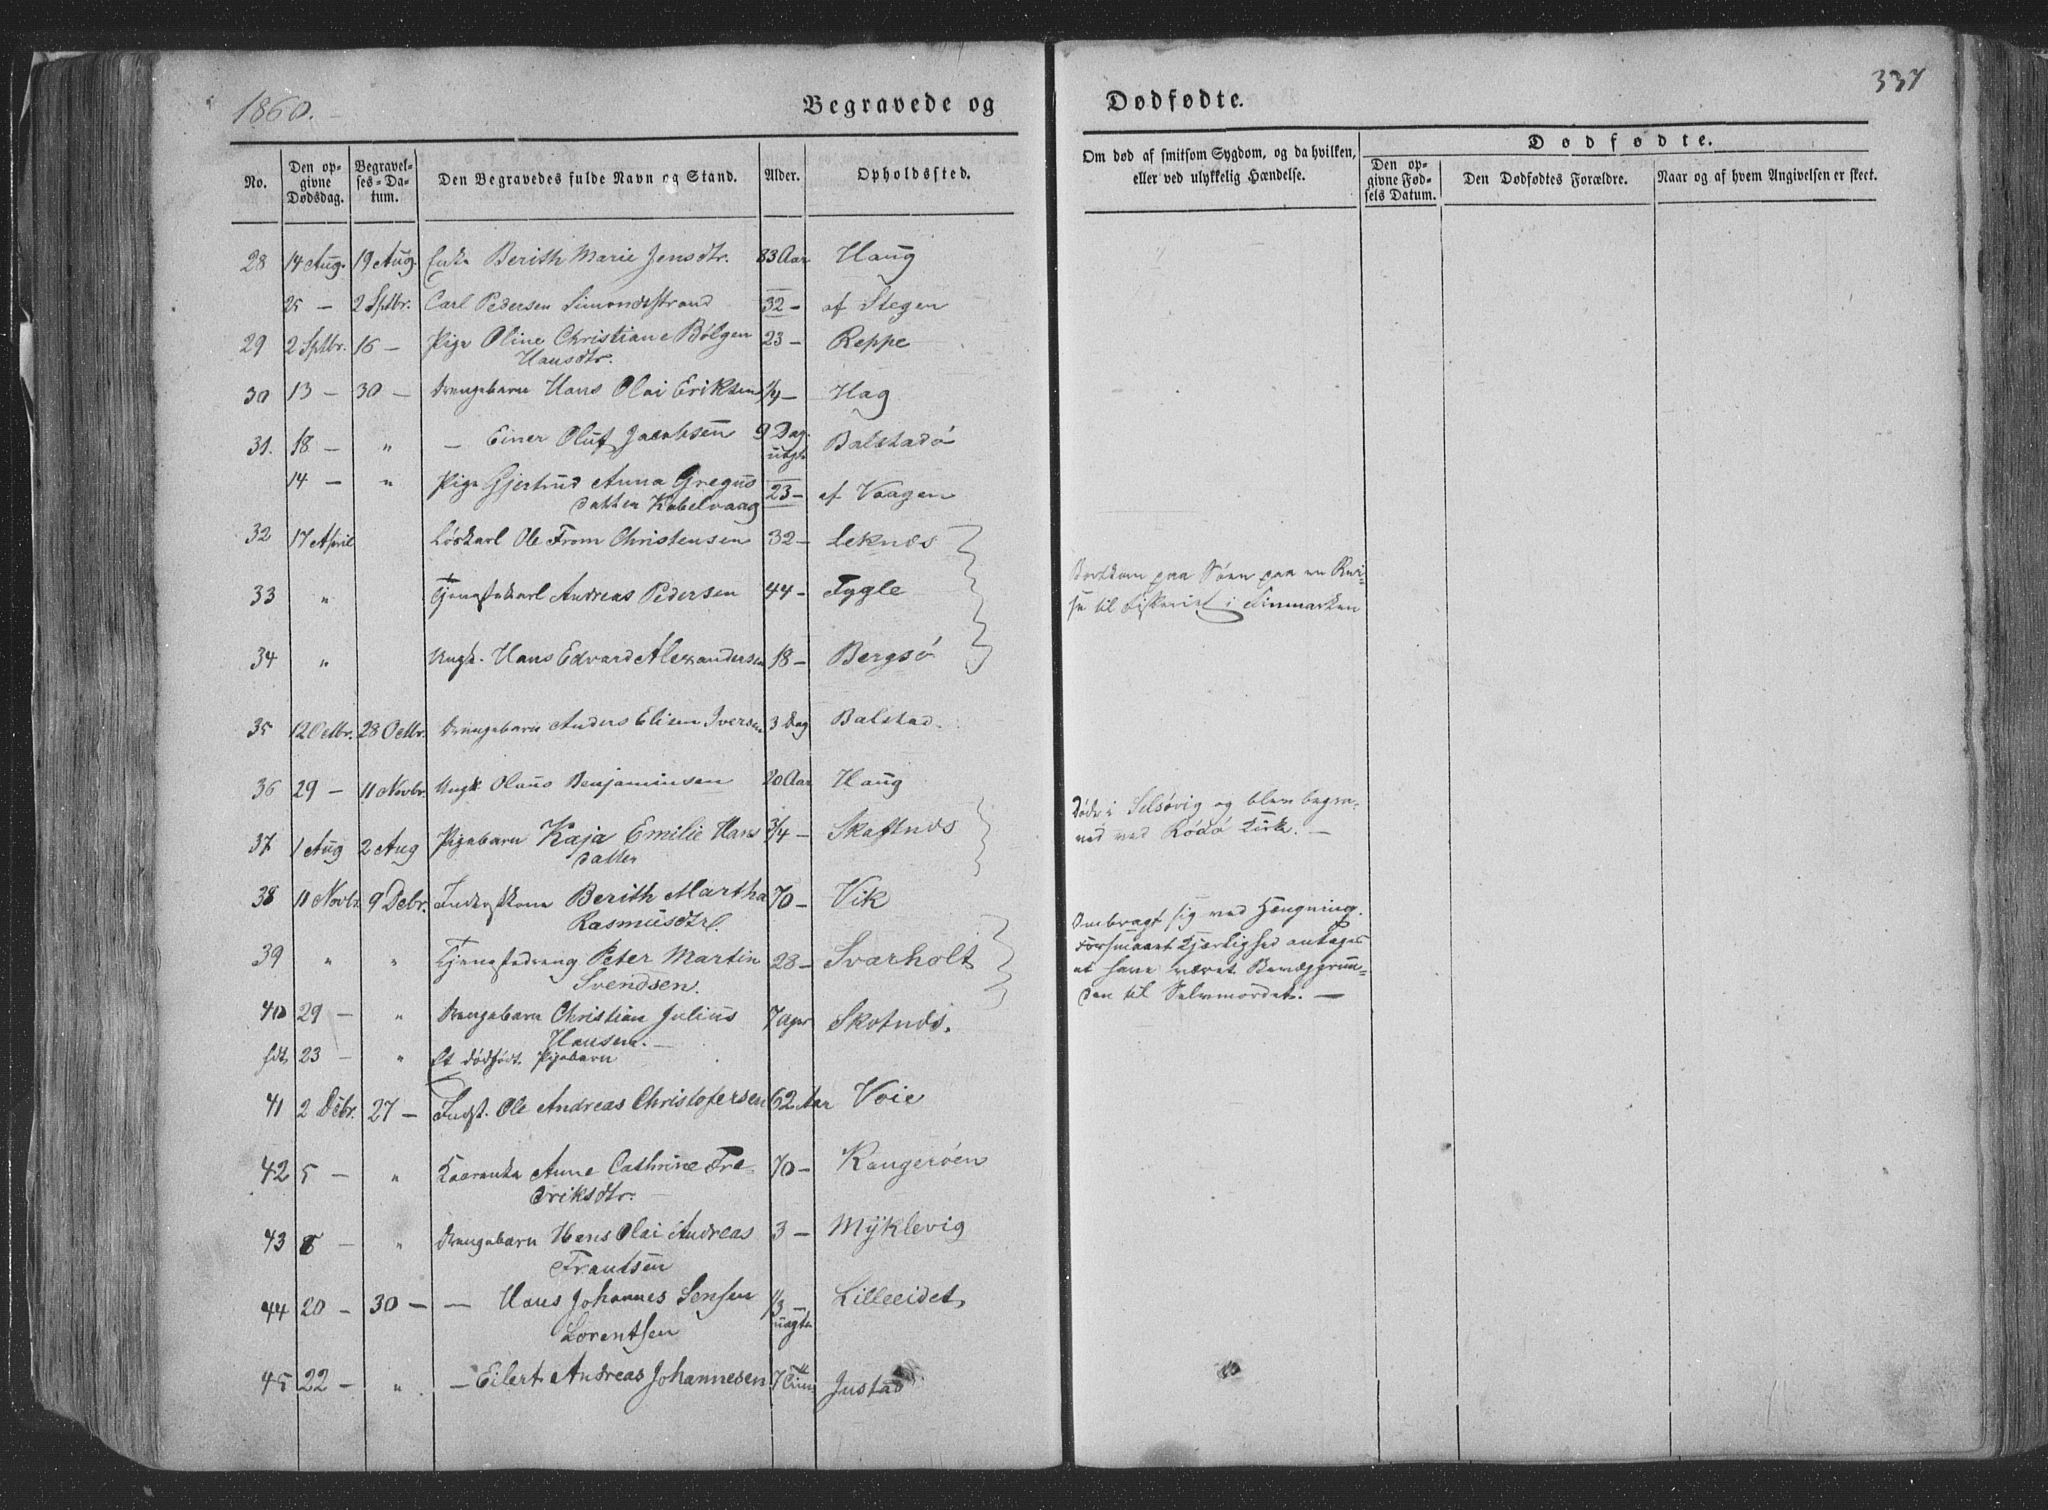 1860.
Begravede og
Dødfødte.
337
No.
Den opgivne Dødsdag.
Begravelses-Datum.
Den Begravedes fulde Navn og Stand.
Alder.
Opholdssted.
Om død af smitsom Sygdom, og da hvilken, eller ved ulykkelig Hændelse.
Dødfødte.
Den opgivne Fødsels Datum.
Den Dødfødtes Forældre.
Naar og af hvem Angivelsen er skeet.
28 14 Aug. 19 Aug. Enke Berith Marie Jensdtr. 83 Aar Haug
25 — 2 Sptbr. Carl Pedersen Simondsstrand 32 — af Stegen
29 2 Sptbr. 16 — Pige Oline Christiane Bölgen 23 — Reppe
Hansdtr.
30 13 — 30 — Drengebarn Hans Olai Eriksen 1/4 — Hag
31. 18 — " — Einer Oluf Jacobsen 9 Dag. Balstadö
uægte
14 — " Pige Gjertrud Anna Gregus 23 — af Vaagen
datter Kabelvaag
32 17 April Löskarl Ole From Christensen 32 — Leknæs
33 " Tjenestekarl Andreas Pedersen 44 — Fygle
Bortkom paa Söen paa en Rei-
se til Fiskeriet i Finmarken
34 " Ungk. Hans Edvard Alexandersen 18 — Bergsö
35 12 Octbr. 28 Octbr. Drengebarn Anders Elisen Iversen 3 Dag Balstad.
36 29 — 11 Novbr. Ungk Olaus Benjaminsen 20 Aar Haug
37 1 Aug 2 Aug Pigebarn Kaja Emilie Hans 3/4 — Skaftnæs
datter
Döde i Selsövig og blev begra-
ved ved Rödö Kirke. —
38 11 Novbr. 9 Debr. Inderstkone Berith Martha 70 — Vik
Rasmusdtr.
39 " " Tjenestedreng Peter Martin 28 — Svarholt
Svendsen.
Ombragt sig ved Hængning.
Forsmaaet Kjærlighed antages
at have været Bevæggrun-
den til Selvmordet. —
40 29 — " Drengebarn Christian Julius 7 Skotnæs.
Hansen. —
fdt. 23 — " Et dödfödt Pigebarn
41 2 Debr. 27 — Inds. Ole Andreas Christofersen 62 Aar Voie
42 5 — " Kaarenke Anne Cathrine Fre- 70 — Kangeröen
driksdtr. —
43 8 — " Drengebarn Hans Olai Andreas 3 — Mÿklevig
Frantsen
44 20 — 30 — — Hans Johannes Jensen 1/3 — Lilleeidet
Lorentsen uægte
45 22 — " — Eilert Andreas Johannesen 7 Justad